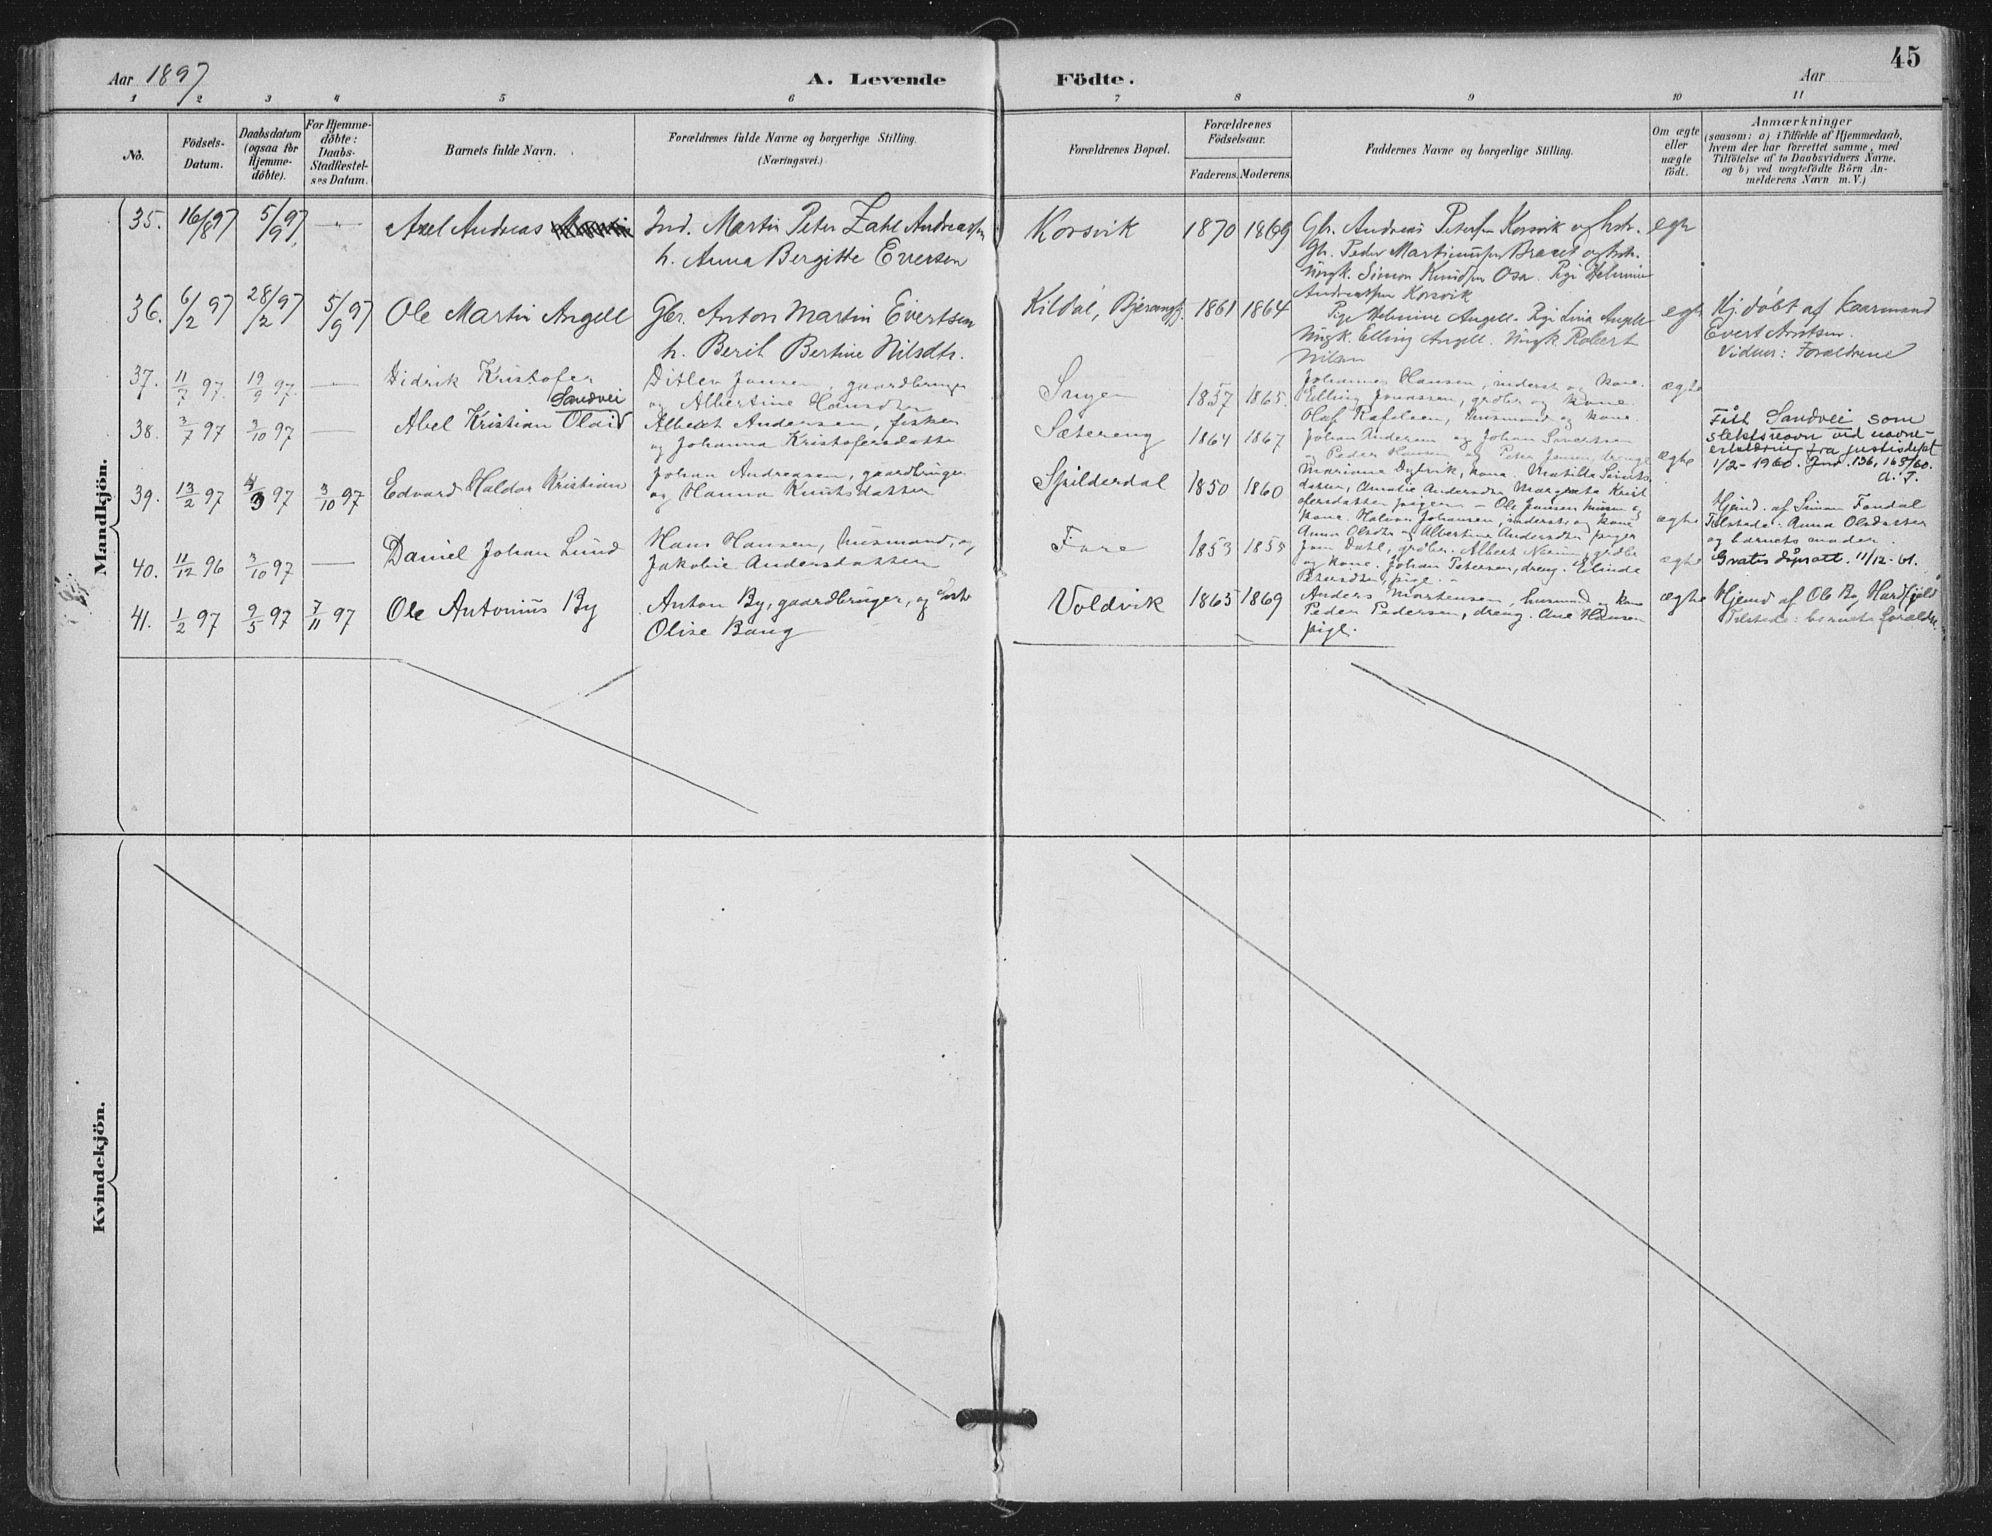 45
Aar 1897
A. Levende Födte.
Aar
1 2 3 4 5 6 7 8 9 10 11
No.
Födsels-Datum.
Daabsdatum (ogsaa for Hjemme-döbte).
For Hjemme-döbte: Daabs-Stadfæstel-ses Datum.
Barnets fulde Navn.
Forældrenes fulde Navne og borgerlige Stilling.
(Næringsvei.)
Forældrenes Bopæl.
Forældrenes Födselsaar.
Faderens. Moderens.
Faddernes Navne og borgerlige Stilling.
Om ægte eller uægte födt.
Anmærkninger
(saasom: a) i Tilfælde af Hjemmedaab,
hvem der har forrettet samme, med
Tilföielse af to Daabsvidners Navne,
og b) ved uægtefödte Börn An-
melderens Navn m. V.)
Mandkjön.
35. 16/8 97 5/9 97 — Axel Andreas Ind. Martin Peter Zahl Andreassen
h. Anna Bergitte Evensen
Korsvik 1870 1869
Gbr. Andreas Petersen Korsvik og hstr.
Gbr. Peder Martinussen Braset og hstr.
Ungk. Simon Knudsen Osa. Pige Helmine
Andreassen Korsvik
egte
36. 6/2 97 28/2 97 5/9 97 Ole Martin Angell Gbr. Anton Martin Evertsen
h. Berit Bertine Nilsdtr.
Kildal, Bjerangfj. 1861 1864
Pige Helmine Angell. Pige Lina Angell
Ungk. Elling Angell. Ungk. Robert
Nilsen
egte
Hj.döbt af Kaarmand
Evert Arntsen.
Vidner: Forældrene
37. 11/7 97. 19/9 97. — Didrik Kristofer
Ditlev Jansen, gaardbruger
og Albertine Hansdtr
1857 1865.
Johannes Hansen, inderst og kone.
Elling Jonassen, grdbr og kone.
ægte
38. 3/7 97 3/10 97 — Abel Kristian Olai Sandvei
Albert Andersen, fisker
og Johanna Kristofersdatter
Sætereng 1864 1867
Olaf Rafelsen, husmand og kone.
Johan Andersen og Johan Sivertsen
og Peder Hansen og Peter Jensen, drenge
ægte
Fått Sandvei som
slektsnavn ved navne-
erklæring fra justisdept
1/2-1960. Jnr. 136, 165/60.
39. 13/2 97 4/3 97 3/10 97 Edvard Haldor Kristian
Johan Andreasen, gaardbruger
og Hanna Knutsdatter
Spilderdal 1850 1860
ægte
Hjemd. af Simon Fondal
Tilstede: Anna Olsdatter
og barnets moder.
40. 11/12 96 3/10 97 — Daniel Johan Lund
Hans Hansen, husmand, og
Jakobie Andersdatter
Fore 1853 1855
Jon Dahl, grdbr. Albert
og kone. Johan Petersen, dreng. Elinde
Petersdtr, pige.
ægte
Gratis dåpsatt. 11/12-61.
41. 1/2 97 9/5 97 7/11 97 Ole Antonius By
Anton By, gaardbruger, og
Olise Bang
Voldvik 1865 1869
Anders Mortensen, husmand og kone
Peder Pedersen, dreng. Ane Hansen
pige.
ægte
Hjemd af Ole By
Tilstede: barnets forældre.
Kvindekjön.